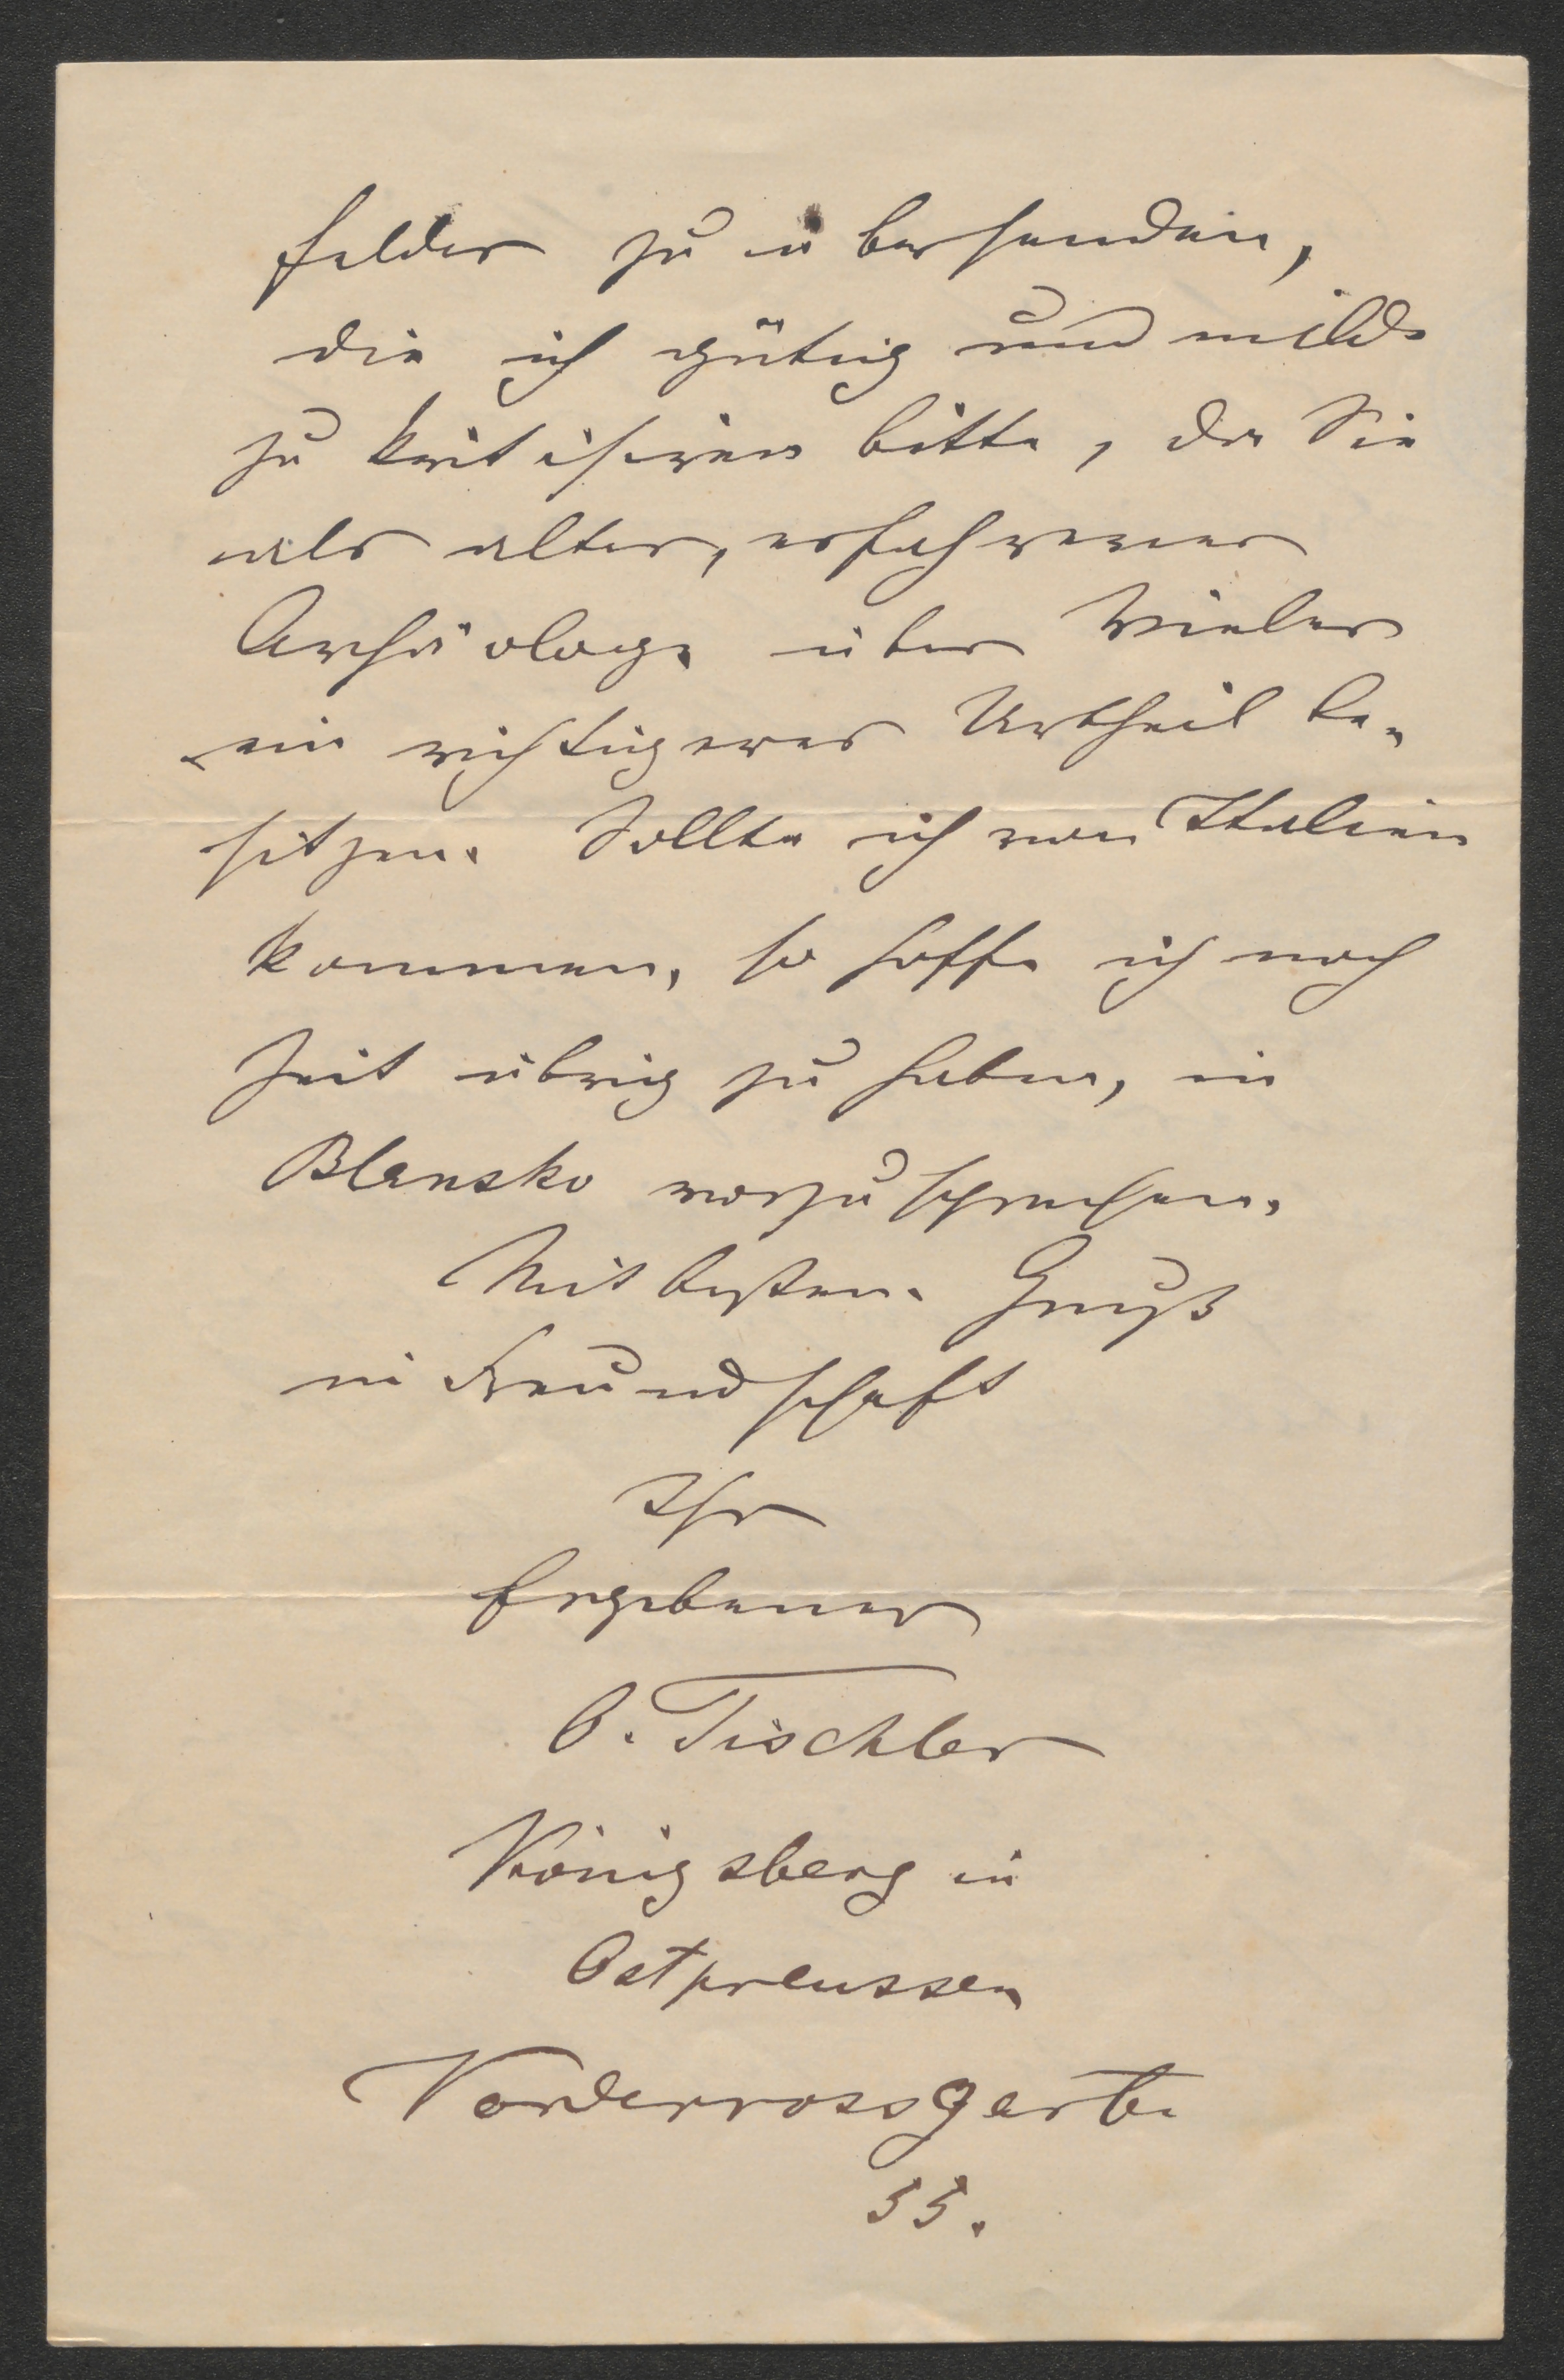 felder zu übersenden,
die ich gütig und milde
zu kritisiren bitte, da Sie
als alter, erfahrener
Archäologe über Vieles
ein richtigeres Urtheil be-
sitzen. Sollte ich von Italien
kommen, so hoffe ich noch
Zeit übrig zu haben, in
Blansko vorzusprechen.
Mit bestem Gruß
in Freundschaft
Ihr
Ergebener
O. Tischler
Königsberg in
Ostpreussen
Vorderrossgarten
55.